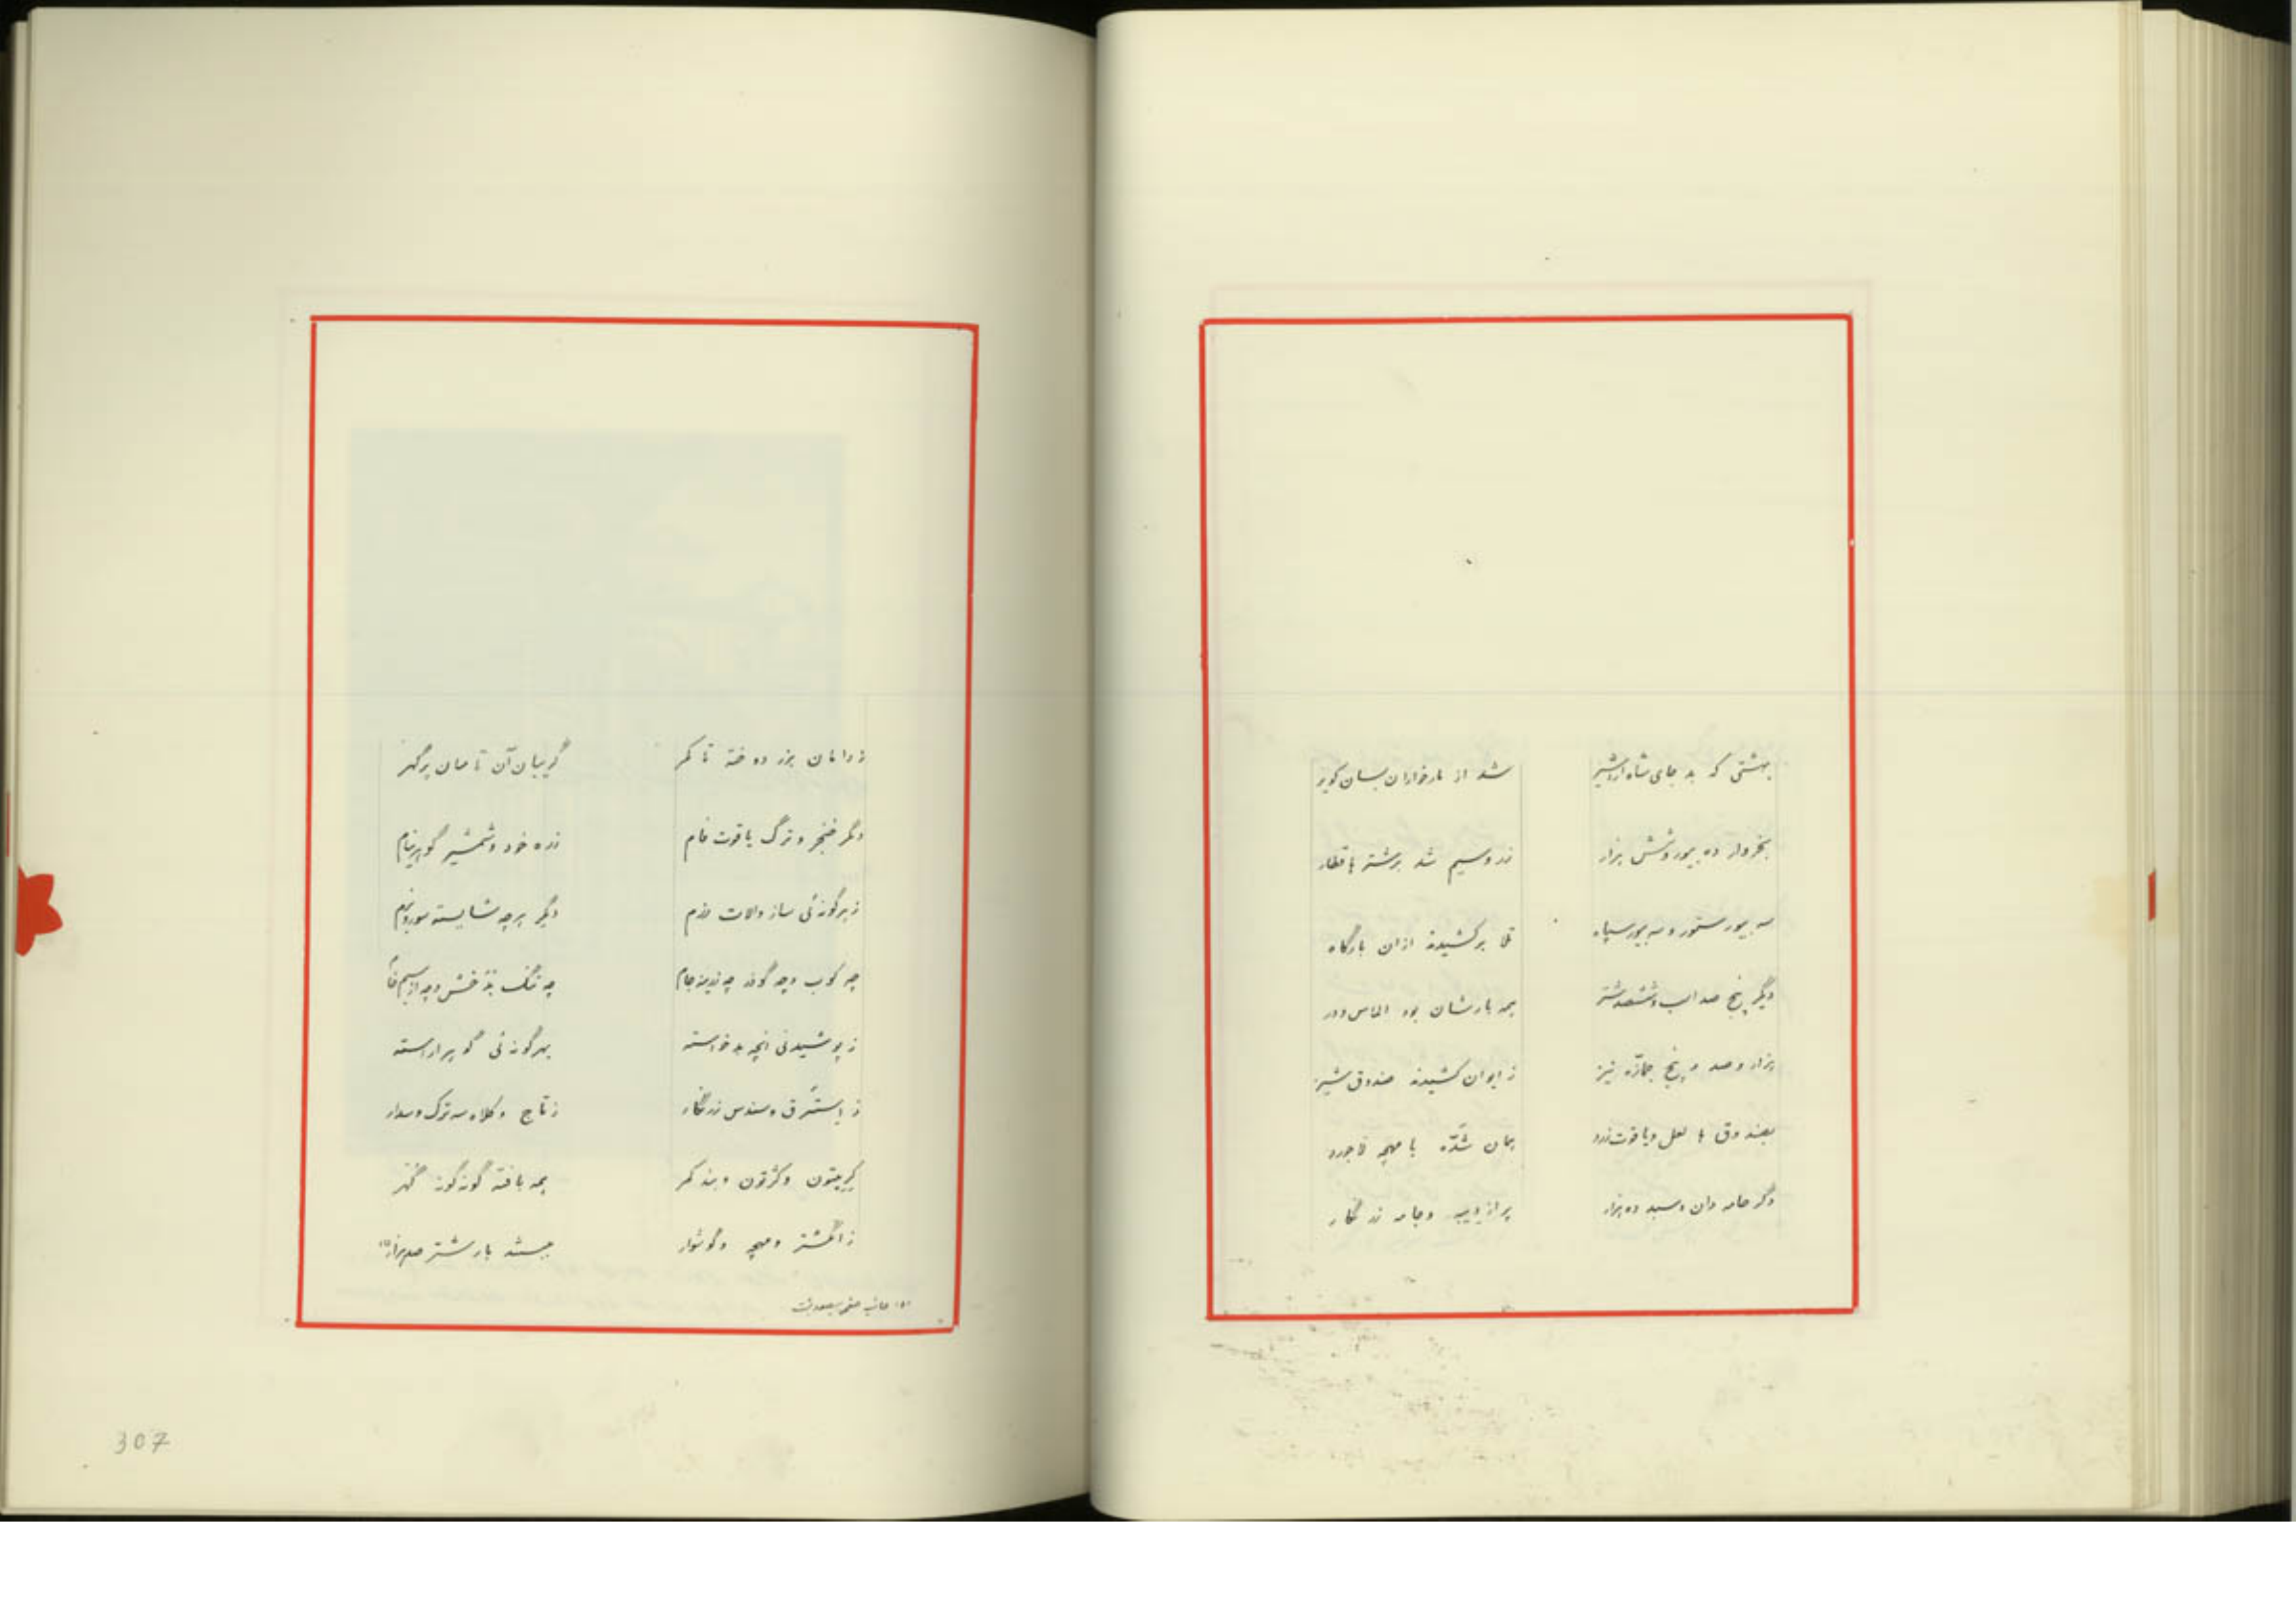 بهشتی که بد جای شاه اردشیر    شد از مارخواران بسان کویر
بخروار ده بیور و شش هزار    زر و سیم شد بر شتر با قطار
سه بیور ستور و سه بیور سپاه    طلا برکشیدند ازان بارگاه
دگر پنج صد اسب و ششصد شتر    همه بارشان بود الماس و در
هزار و صد و پنج جمازه نیز    ز ایوان کشیدند صندوق شیز
بصندوق ها لعل و یاقوت زرد    همان شده با مهچه لاجورد
دگر جامه دان و سبد ده هزار    پر از دیبه و جامه زر نگار
ز دامان بزر دوخته تا کمر    گریبان آن تا میان پر گهر
دگر خنجر و ترگ یاقوت فام    زره خود و شمشیر گوهر نیام
ز هر گونه ئی ساز و الات رزم    دگر هرچه شایسته سور و بزم
چه کوب و چه گوزه چه زرینه جام    چه تنگ بذخش و چه از سیم خام
ز پوشیدنی انچه بد خواسته    بهر گونه ئی گوهر اراسته
ز استبرق و سندس زر نگار    ز تاج و کلاه سه ترک و
گریتون و کژتون و بند کمر    همه بافته گونه گونه گهر
ز انگشتر و مهچه و گوشوار    ببستند بار شتر صد هزار (۱)
(۱)
307